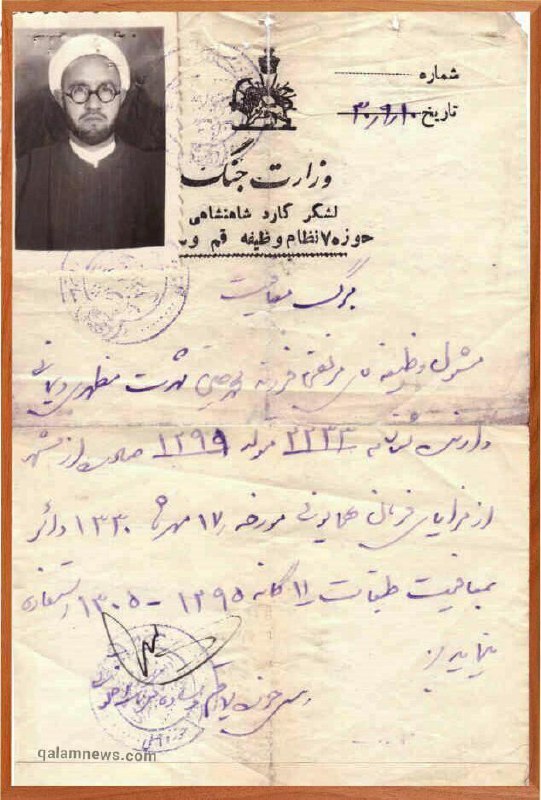 شماره
تاریخ ۳۰/۹/۱۰
وزارت جنگ
لشگر گارد شاهنشاهی
حوزه ۷ نظام وظیفه قم
برگ معافیت
مشمول وظیفه مرتضی فرزند شهرت مطهری
دارنده شناسنامه ۲۲۳۳ متولد ۱۲۹۹ صادره از مشهد
از مزایای فرمان همایونی مورخه ۱۷ مهر ماه ۱۳۳۰ دائر
بمعافیت طبقات ۱۱ گانه ۱۲۹۵ - ۱۳۰۵ استفاده
مینماید
رئیس حوزه
qalamnews.com